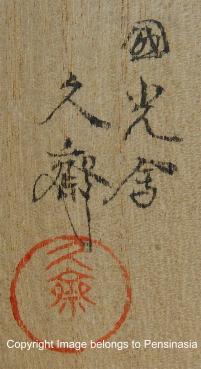 國光舎
久齋
久齋
Copyright Image belongs to Pensinasia